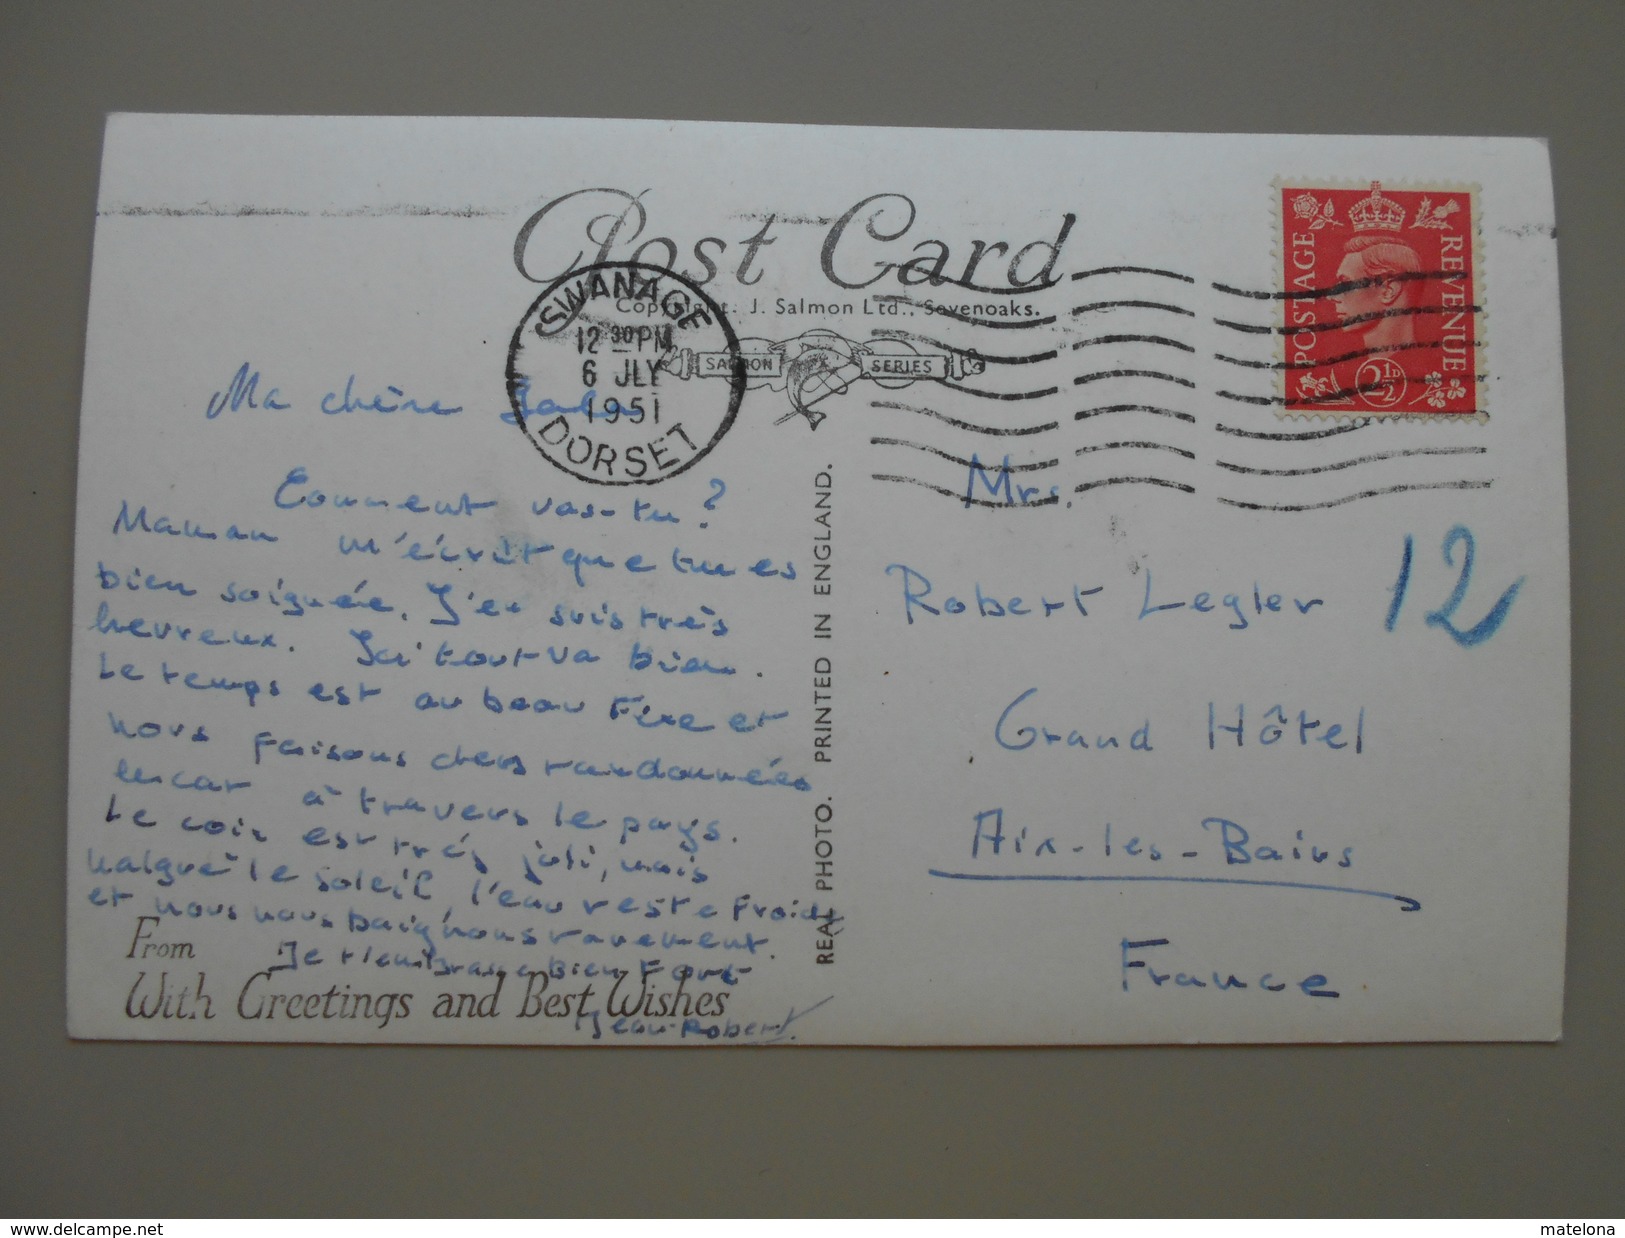 Post Card
Copyright. J. Salmon Ltd., Sevenoaks.
SALMON SERIES
SWANAGE
12 30 PM
6 JLY
1951
DORSET
POSTAGE REVENUE
2½D
Ma chère
Comment vas-tu ?
Maman m'écrit que tu es
bien soignée. J'en suis très
heureux. Ici tout va bien.
Le temps est au beau fixe et
nous faisons des randonnées
en car à travers le pays.
Le coin est très joli, mais
malgré le soleil, l'eau reste froide
et nous nous baignons rarement.
Je t'embrasse bien fort
Jean-Robert.
From
With Greetings and Best Wishes
REAL PHOTO. PRINTED IN ENGLAND.
Mrs.
Robert Legler
12
Grand Hôtel
Aix-les-Bains
France
delcampe.net
matelona